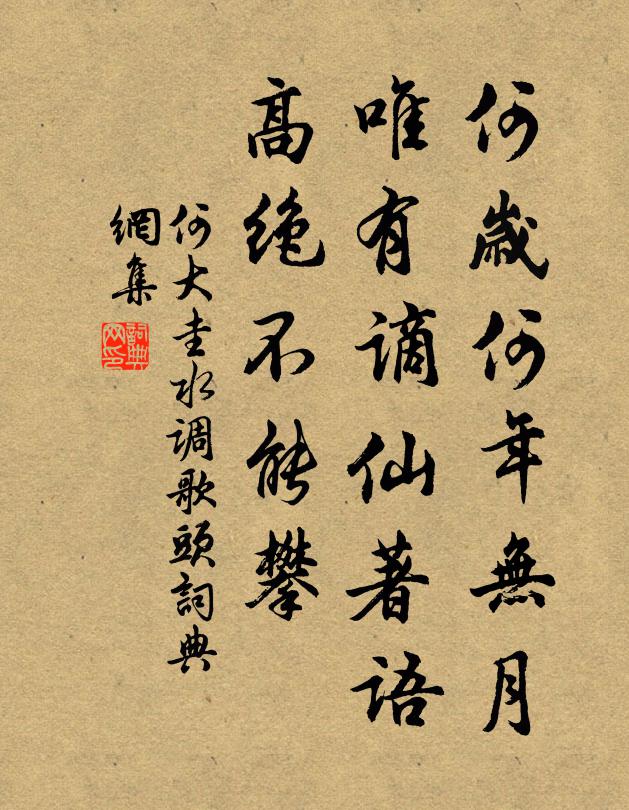 何歲何年無月
唯有謫仙著語
高绝不能攀
何大圭水调歌頭詞典
網集
詞典
网印